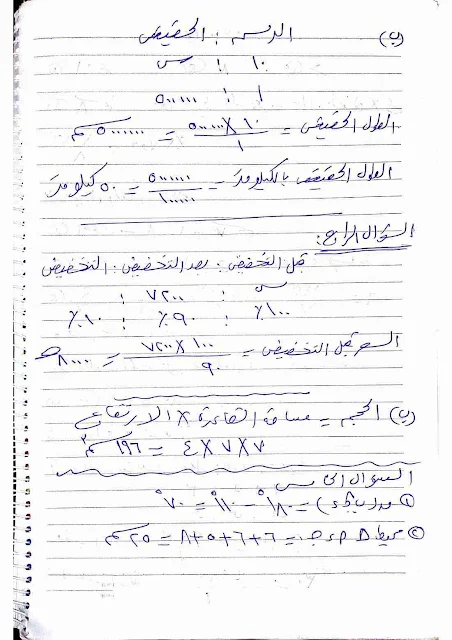 (ب) الرسم : الحقيقى
١٠ : س
١ : ٥٠٠٠٠٠
الطول الحقيقى = ٥٠٠٠٠٠ × ١٠ / ١ = ٥٠٠٠٠٠٠ سم
الطول الحقيقى بالكيلومتر = ٥٠٠٠٠٠٠ / ١٠٠٠٠٠ = ٥٠ كيلومتر
السؤال الرابع:
قبل التخفيض : بعد التخفيض : التخفيض
س : ٧٢٠٠ :
١٠٠٪ : ٩٠٪ : ١٠٪
السعر قبل التخفيض = ٧٢٠٠ × ١٠٠ / ٩٠ = ٨٠٠٠
(ب) الحجم = مساحة القاعدة × الارتفاع
٧ × ٧ × ٤ = ١٩٦ سم٣
السؤال الخامس
= ١٨٠° - ١١٠° = ٧٠°
② محيط = ٦+٦+٥+٨ = ٢٥ سم